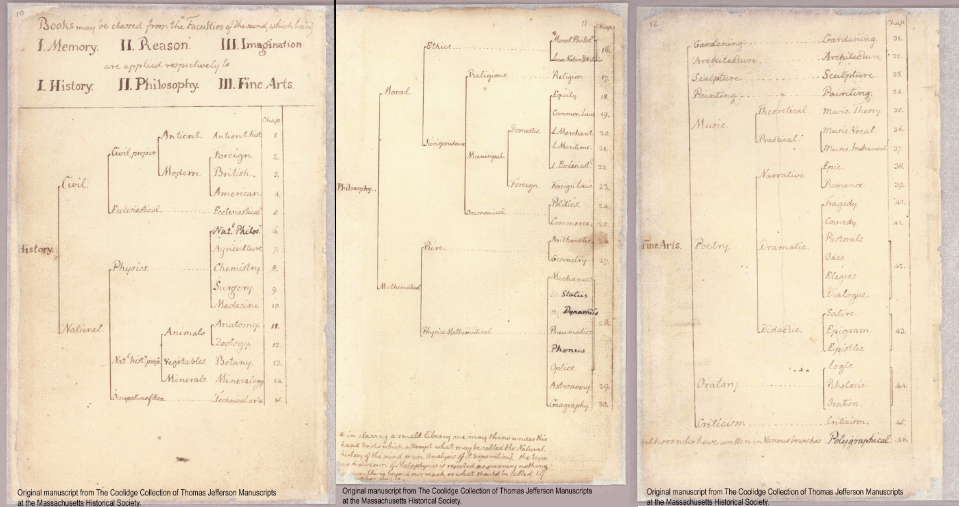 10
Books may be classed from the Faculties of the mind, which being
I. Memory. II. Reason. III. Imagination
are applied respectively to
I. History. II. Philosophy. III. Fine Arts.
Chap.
History.
Civil.
Civil proper
Antient.
Antient hist. 1.
Modern.
Foreign. 2.
British. 3.
American. 4.
Ecclesiastical
Ecclesiastical 5
Natural.
Physics
Natl. Philos. 6.
Agriculture 7.
Chemistry 8.
Surgery. 9.
Medecine 10.
Natl. hist. prop.
Animals
Anatomy. 11.
Zoology. 12.
Vegetables Botany. 13.
Minerals Mineralogy 14.
Occupations of Man Technical arts
Original manuscript from The Coolidge Collection of Thomas Jefferson Manuscripts
at the Massachusetts Historical Society.
11
Chap.
Philosophy.
Moral
Ethics
Moral Philos.
16.
Jurisprudence
Religious Religion 17.
Municipal
Domestic
Equity 18
Common Law 19.
L. Merchant. 20.
L. Maritime. 21.
L. Ecclesiast. 22.
Foreign Foreign Law 23.
Oeconomical
Politics. 24.
Commerce 25.
Mathematical
Pure.
Arithmetic
Geometry. 27.
Physico-Mathematical
Mechanics
Statics
Dynamics
28.
Pneumatics
Phonics
Optics
Astronomy 29.
Geography. 30.
* in classing a small library one may throw under this
head books which attempt what may be called the Natural
history of the mind or an Analysis of it's operations. the term
and division of Metaphysics is rejected as meaning nothing
or something beyond our reach, or what should be called by
Original manuscript from The Coolidge Collection of Thomas Jefferson Manuscripts
at the Massachusetts Historical Society.
12
Chap.
Fine Arts.
Gardening Gardening. 31.
Architecture. Architecture 32.
Sculpture Sculpture 33.
Painting Painting. 34.
Music
Theoretical Music Theory. 35.
Practical
Music Vocal. 36.
Music Instrument 37.
Poetry.
Narrative
Epic. 38.
Romance. 39.
Dramatic.
Tragedy 40.
Comedy. 41.
Pastorals
Odes
Elegies
Dialogue.
42.
Didactic
Satire
Epigram
Epistles
43.
Oratory
Logic
Rhetoric
Oration.
44.
Criticism Criticism. 45.
Authors who have written in various branches Polygraphical. 46.
Original manuscript from The Coolidge Collection of Thomas Jefferson Manuscripts
at the Massachusetts Historical Society.